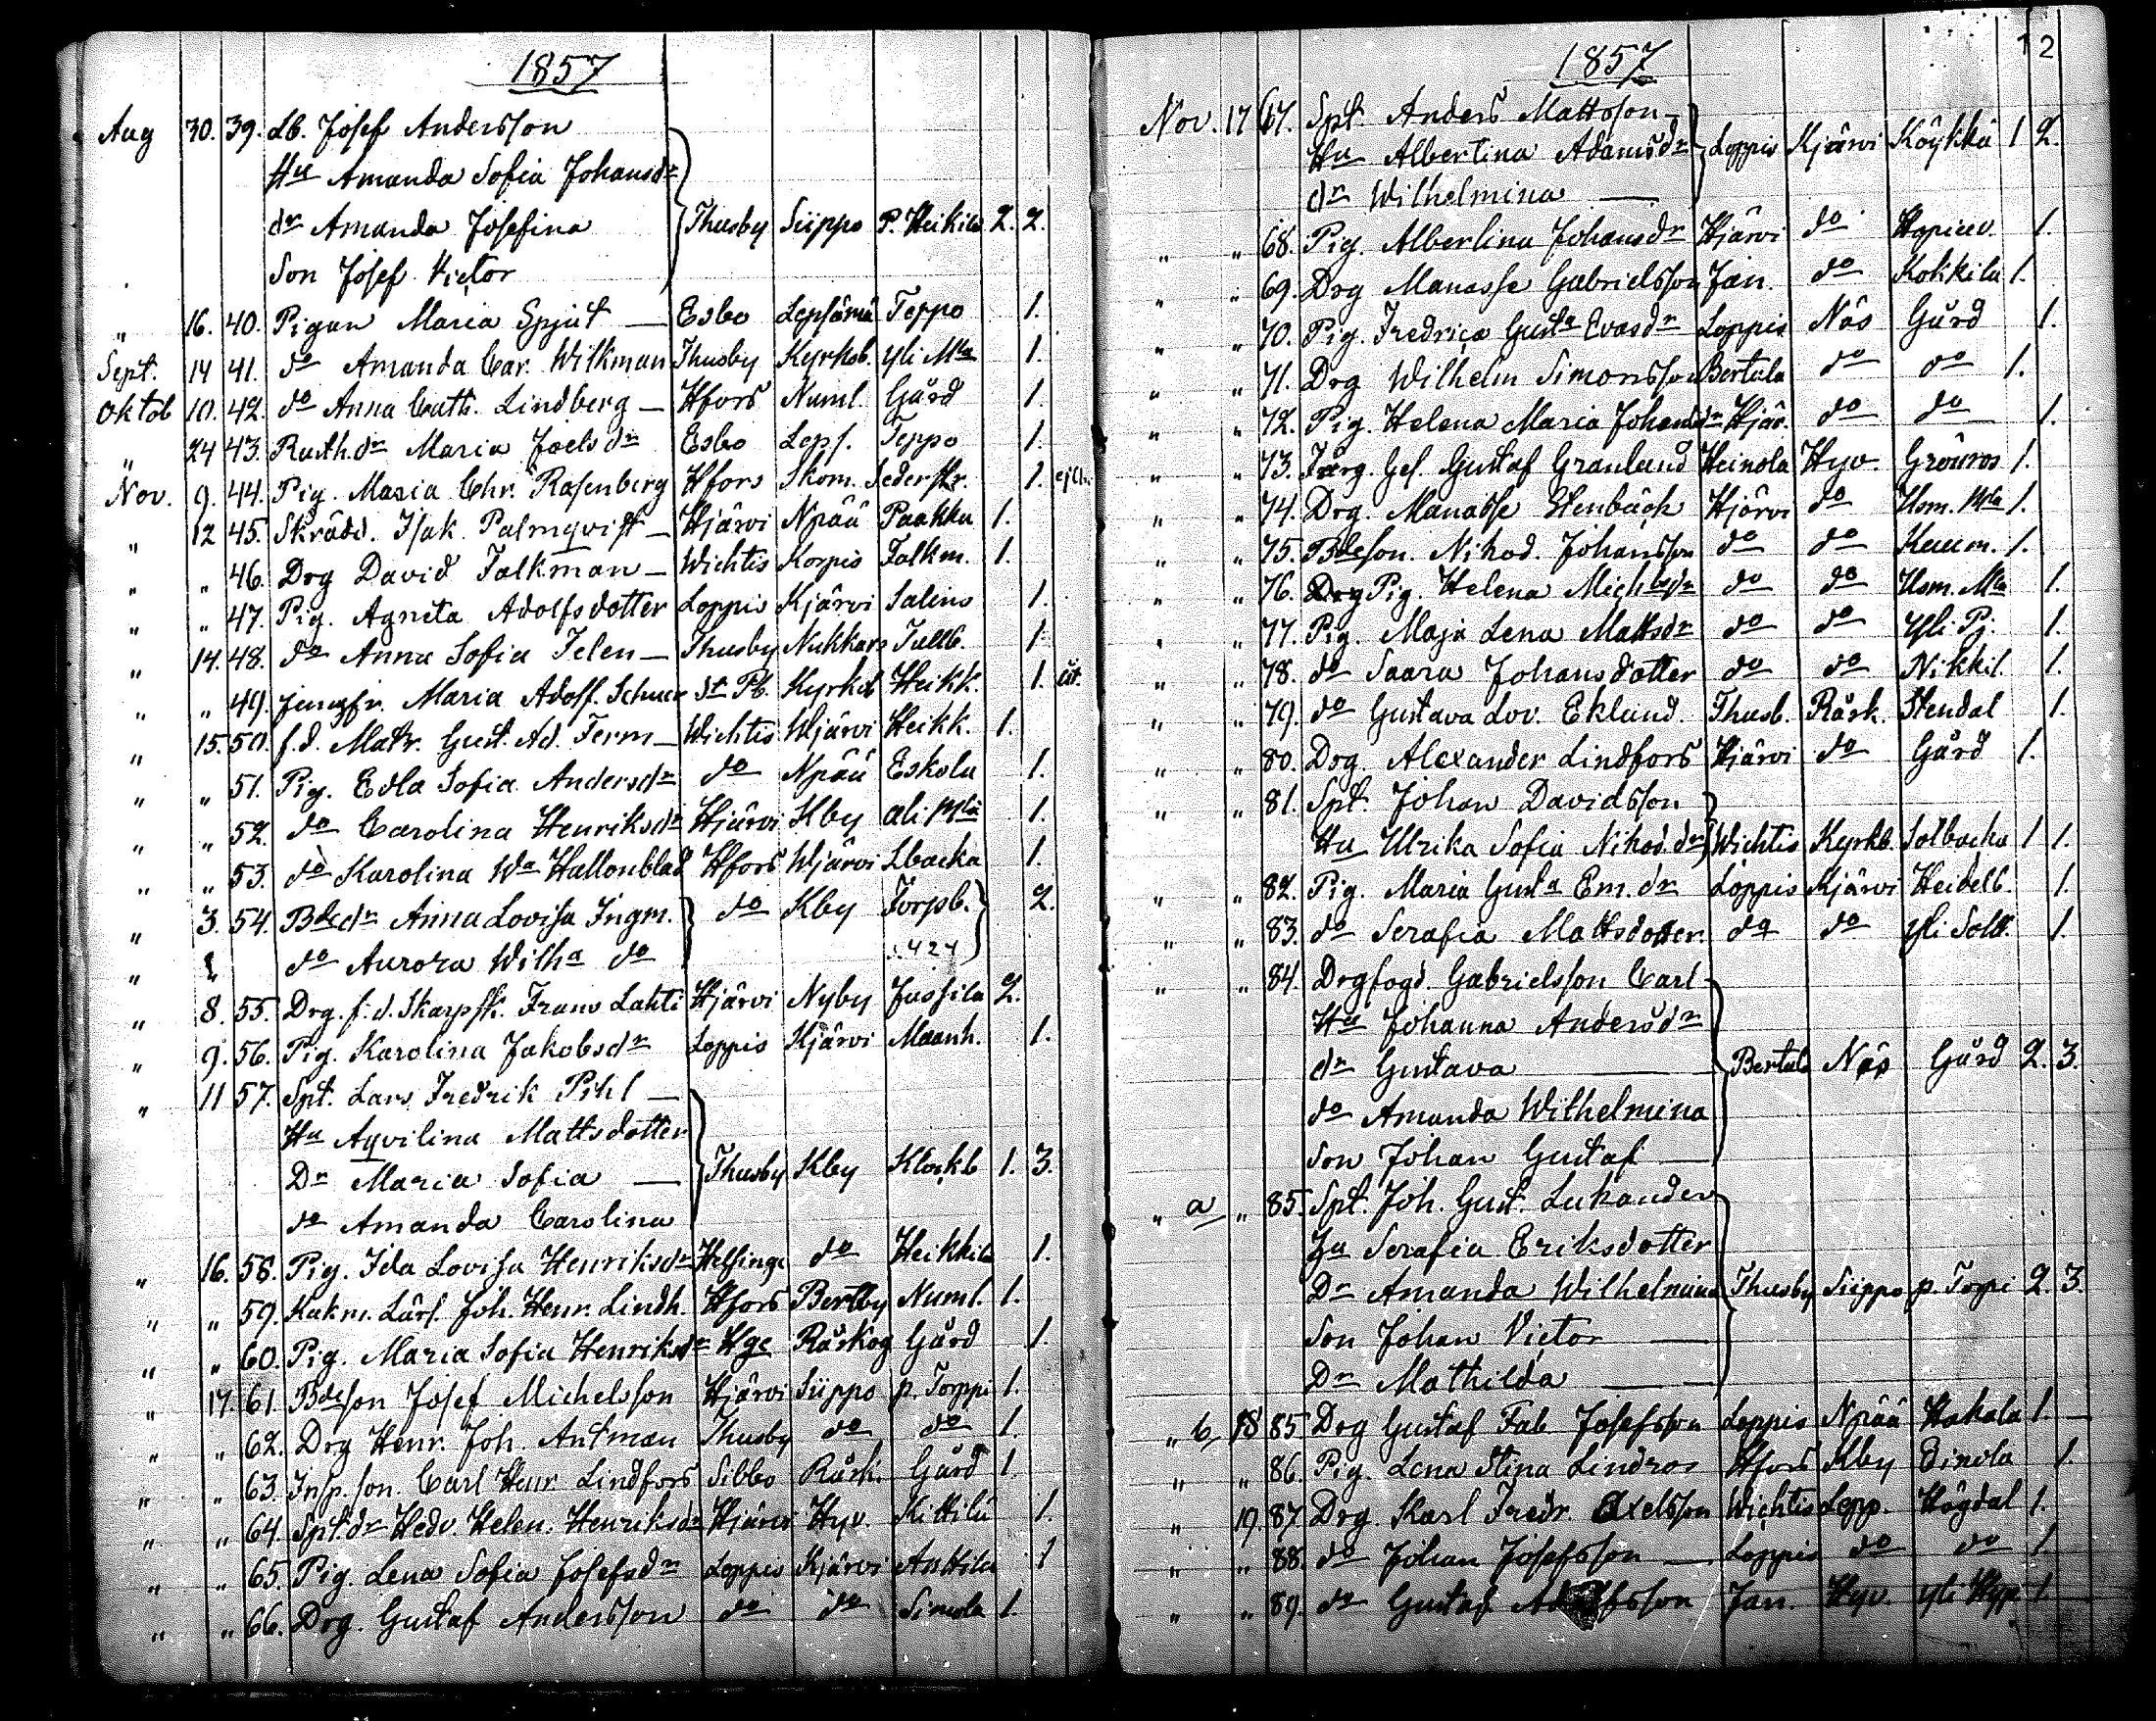 1857
Aug 30. 39. Lb. Josef Andersson
Hu Amanda Sofia Johansdr
dr Amanda Josefina } Thusby Siippo P. Heikila 2. 2.
Son Josef Victor
" 16. 40. Pigan Maria Spjut — Esbo Lepsämä Teppo 1.
Sept. 14 41. do Amanda Car. Wikman Thusby Kyrkob. yli Mla 1.
Oktob 10. 42. do Anna Cath. Lindberg — Hfors Numl. Gård 1.
" 24 43. Rusth.dr Maria Joelsdr Esbo Leps. Teppo 1.
Nov. 9. 44. Pig. Maria Chr. Rosenberg Hfors Skom. Sederstr. 1.
" 12 45. Skrädd. Isak Palmqvist — Hjärvi Npää Paakku 1.
" " 46. Drg David Falkman — Wichtis Korpis Falkm. 1.
" " 47. Pig. Agneta Adolfsdotter Loppis Kjärvi Salins 1.
" 14. 48. do Anna Sofia Telen — Thusby Nukkars Tullb. 1
" " 49. jungfr. Maria Adolf. St Pb. Kyrkob Heikk. 1.
" 15. 50. f.d. Matr. Gust. Ad. Ferm — Wichtis Wjärvi Heikk. 1.
" " 51. Pig. Edla Sofia Andersdr do Npää Eskola 1.
" " 52. do Carolina Henriksdr Hjärvi Kby ali Mla 1.
" " 53. do Karolina Wa Hallonblad Hfors Wjärvi Lbacka 1.
" 3. 54. Bdedr Anna Lovisa Ingm. } do Kby Torpb. } 2.
" " do Aurora Wilha do s. 424
" 8. 55. Drg. f.d. Skarpsk. Frans Lahti Hjärvi Nyby Jussila 2.
" 9. 56. Pig. Karolina Jakobsdr Loppis Kjärvi Maanh. 1.
" 11 57. Spt. Lars Fredrik Pihl —
Hu Aqvilina Mattsdotter
Dr Maria Sofia — } Thusby Kby Klockb 1. 3.
do Amanda Carolina
" 16. 58. Pig. Ida Lovisa Henriksdr Helsinge do Heikkila 1.
" " 59. Kakm. Lärl. Joh. Henr. Lindh. Hfors Bertby Numl. 1.
" " 60. Pig. Maria Sofia Henriksdr Hge Råskog Gård 1.
" 17. 61. Bdeson Josef Michelsson Hjärvi Siippo p. Torppi 1.
" " 62. Drg Henr. Joh. Antman Thusby do do 1.
" " 63. Insp. son. Carl Henr. Lindfors Sibbo Råsk. Gård 1.
" " 64. Spt.dr Hedv. Helen. Henriksdr Hjärvi Hyv. Kittilä 1.
" " 65. Pig. Lena Sofia Josefsdr Loppis Kjärvi Anttila 1
" " 66. Drg. Gustaf Andersson do do Simola 1.
1857
12
Nov. 17 67. Spt. Anders Mattsson —
Hu Albertina Adamsdr } Loppis Kjärvi Köykkä 1 2.
dr Wilhelmina —
" " 68. Pig. Albertina Johansdr Hjärvi do 1.
" " 69. Drg Manasse Gabrielsson Jan. do Kokkila 1.
" " 70. Pig. Fredrica Gusta Evasdr Loppis Näs Gård 1.
" " 71. Drg Wilhelm Simonsson Bertula do do 1.
" " 72. Pig. Helena Maria Johansdr Hjär. do do 1.
" " 73. Färg. Ges. Gustaf Granlund Heinola Hyv. Grönros 1.
" " 74. Drg. Manasse Stenbäck Hjärvi do Usm. Mla 1.
" " 75. Bdeson. Nikod. Johansson do do Kaum. 1.
" " 76. Drg Pig. Helena Michelsdr do do Usm. Mla 1.
" " 77. Pig. Maja Lena Mattsdr do do Yli Pj. 1.
" " 78. do Saara Johansdotter do do Nikkil. 1.
" " 79. do Gustava Lov. Eklund. Thusb. Råsk. Stendal 1.
" " 80. Drg. Alexander Lindfors Hjärvi do Gård 1.
" " 81. Spt. Johan Davidsson
Hu Ulrika Sofia Nikod.dr } Wichtis Kyrkb. Solbacka 1 1.
" " 82. Pig. Maria Gusta Em.dr Loppis Kjärvi Heidelb. 1.
" " 83. do Serafia Mattsdotter. do do yli Solt. 1.
" " 84. Drgfogd. Gabrielsson Carl
Hu Johanna Andersdr
dr Gustava — } Bertula Näs Gård 2. 3.
do Amanda Wilhelmina
Son Johan Gustaf —
" a " 85. Spt. Joh. Gust. Lukander
Hu Serafia Eriksdotter
Dr Amanda Wilhelmina } Thusby Siippo p. Torpi 2. 3.
Son Johan Victor —
Dr Mathilda —
" b 18 85 Drg Gustaf Fab Josefsson Loppis Npää Hakala 1. —
" " 86. Pig. Lena Stina Lindros Hfors Kby Einola 1.
" 19. 87. Drg. Karl Fredr. Axelsson Wichtis Lepp. Högdal 1.
" " 88. do Johan Josefsson — Loppis do do 1
" " 89. do Gustaf Adolfsson Jan. Hyv. yli Hyp. 1.